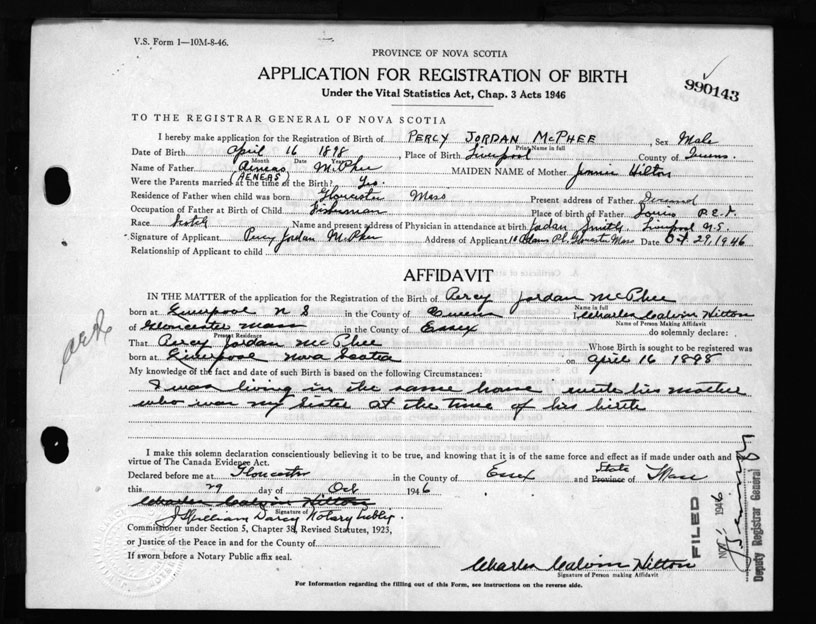 V.S. Form 1—10M-8-46.
PROVINCE OF NOVA SCOTIA
APPLICATION FOR REGISTRATION OF BIRTH
990143
Under the Vital Statistics Act, Chap. 3 Acts 1946
TO THE REGISTRAR GENERAL OF NOVA SCOTIA
I hereby make application for the Registration of Birth of PERCY JORDAN McPHEE Sex Male
Print Name in full
Date of Birth April 16 1898, Place of Birth Liverpool County of Queens.
Month Date Year
Name of Father Aeneas McPhee MAIDEN NAME of Mother Jennie Hilton
(AENEAS)
Were the Parents married at the time of the Birth? Yes.
Residence of Father when child was born Gloucester Mass Present address of Father Deceased
Occupation of Father at Birth of Child Fisherman Place of birth of Father Souris P.E.I.
Race Scotch Name and present address of Physician in attendance at birth Jordan Smith, Liverpool N.S.
Signature of Applicant Percy Jordan McPhee Address of Applicant Pl. Gloucester Mass Date Oct. 29, 1946
Relationship of Applicant to child
AFFIDAVIT
IN THE MATTER of the application for the Registration of the Birth of Percy Jordan McPhee
born at Liverpool N S in the County of Queens I, Charles Calvin Hilton
Name of Person Making Affidavit
of Gloucester Mass in the County of Essex do solemnly declare:
Present Residence
That Percy Jordan McPhee Whose Birth is sought to be registered was
born at Liverpool Nova Scotia on April 16 1898
My knowledge of the fact and date of such Birth is based on the following Circumstances:
I was living in the same house with his mother
who was my sister at the time of his birth
I make this solemn declaration conscientiously believing it to be true, and knowing that it is of the same force and effect as if made under oath and by
virtue of The Canada Evidence Act.
Declared before me at Gloucester in the County of Essex and Province of State Mass
this 29 day of Oct 1946
Charles Calvin Hilton
Signature of
J William Darcy Notary Public
Commissioner under Section 5, Chapter 38, Revised Statutes, 1923,
or Justice of the Peace in and for the County of
If sworn before a Notary Public affix seal.
Charles Calvin Hilton
Signature of Person making Affidavit
For Information regarding the filling out of this Form, see instructions on the reverse side.
FILED
NOV 1946
Deputy Registrar General